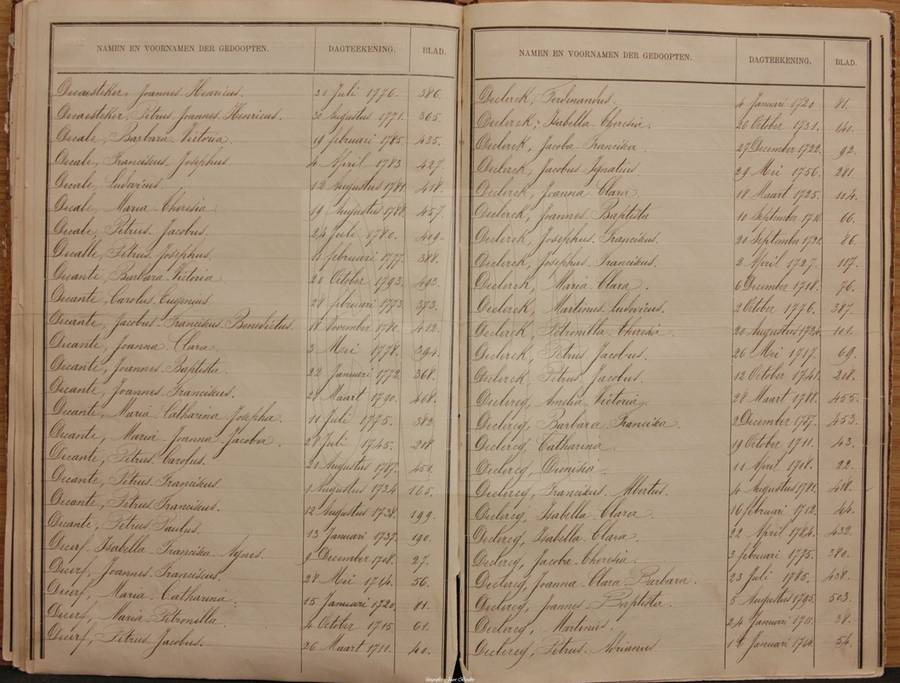 NAMEN EN VOORNAMEN DER GEDOOPTEN. DAGTEEKENING. BLAD.
Decaesteker, Joannes Henricus. 21 Juli 1776. 386.
Decaesteker, Petrus Joannes Henricus. 31 Augustus 1771. 365.
Decale, Barbara Victoria 19 februari 1785. 435.
Decale, Franciskus Josephus 4 April 1783. 427.
Decale, Ludovicus 12 Augustus 1781. 418.
Decale, Maria Theresia 19 Augustus 1788. 457.
Decale, Petrus Jacobus. 24 Juli 1780. 409.
Decalle, Petrus Josephus. 11 februari 1777. 388.
Decante, Barbara Victoria 20 October 1793. 493.
Decante, Carolus Eugenius 28 februari 1773. 373.
Decante, Jacobus Franciskus Benedictus. 18 November 1780. 412.
Decante, Joanna Clara. 3 Mei 1778. 394.
Decante, Joannes Baptista. 22 Januari 1772. 368.
Decante, Joannes Franciskus. 28 Maart 1790. 468.
Decante, Maria Catharina Josepha. 11 Juli 1775. 382.
Decante, Maria Joanna Jacoba. 28 Juli 1745. 218.
Decante, Petrus Carolus. 21 Augustus 1787. 451.
Decante, Petrus Franciskus 1 Augustus 1734. 165.
Decante, Petrus Franciskus. 12 Augustus 1738. 199.
Decante, Petrus Paulus. 13 Januari 1737. 190.
Decerf, Isabella Franciska Agnes. 9 December 1708. 27.
Decerf, Joannes Franciskus. 28 Mei 1714. 56.
Decerf, Maria Catharina. 15 Januari 1720. 81.
Decerf, Maria Petronella. 4 October 1715. 61.
Decerf, Petrus Jacobus. 26 Maart 1711. 40.
NAMEN EN VOORNAMEN DER GEDOOPTEN. DAGTEEKENING. BLAD.
Declerck, Ferdinandus. 4 Januari 1720. 81.
Declerck, Isabella Theresia. 20 October 1731. 140.
Declerck, Jacoba Franciska. 27 December 1722. 92.
Declerck, Jacobus Ignatius 29 Mei 1756. 281.
Declerck, Joanna Clara. 18 Maart 1725. 104.
Declerck, Joannes Baptista 11 September 1716. 66.
Declerck, Josephus Franciskus. 20 September 1721. 86.
Declerck, Josephus Franciskus. 2 April 1727. 117.
Declerck, Maria Clara. 6 December 1718. 76.
Declerck, Martinus Ludovicus. 2 October 1776. 387.
Declerck, Petronilla Theresia. 20 Augustus 1724. 101.
Declerck, Petrus Jacobus. 26 Mei 1717. 69.
Declerck, Petrus Jacobus. 12 October 1741. 208.
Declercq, Amelia Victoria. 28 Maart 1788. 455.
Declercq, Barbara Franciska 2 December 1787. 453.
Declercq, Catharina 19 October 1711. 43.
Declercq, Dionisia 11 April 1708. 22.
Declercq, Franciskus Albertus. 4 Augustus 1781. 418.
Declercq, Isabella Clara. 16 februari 1712. 44.
Declercq, Isabella Clara. 22 April 1784. 432.
Declercq, Jacoba Theresia. 3 februari 1775. 380.
Declercq, Joanna Clara Barbara. 23 Juli 1785. 438.
Declercq, Joannes Baptista. 5 Augustus 1795. 503.
Declercq, Martinus. 24 Januari 1711. 38.
Declercq, Petrus Adrianus Januari 1714. 54.